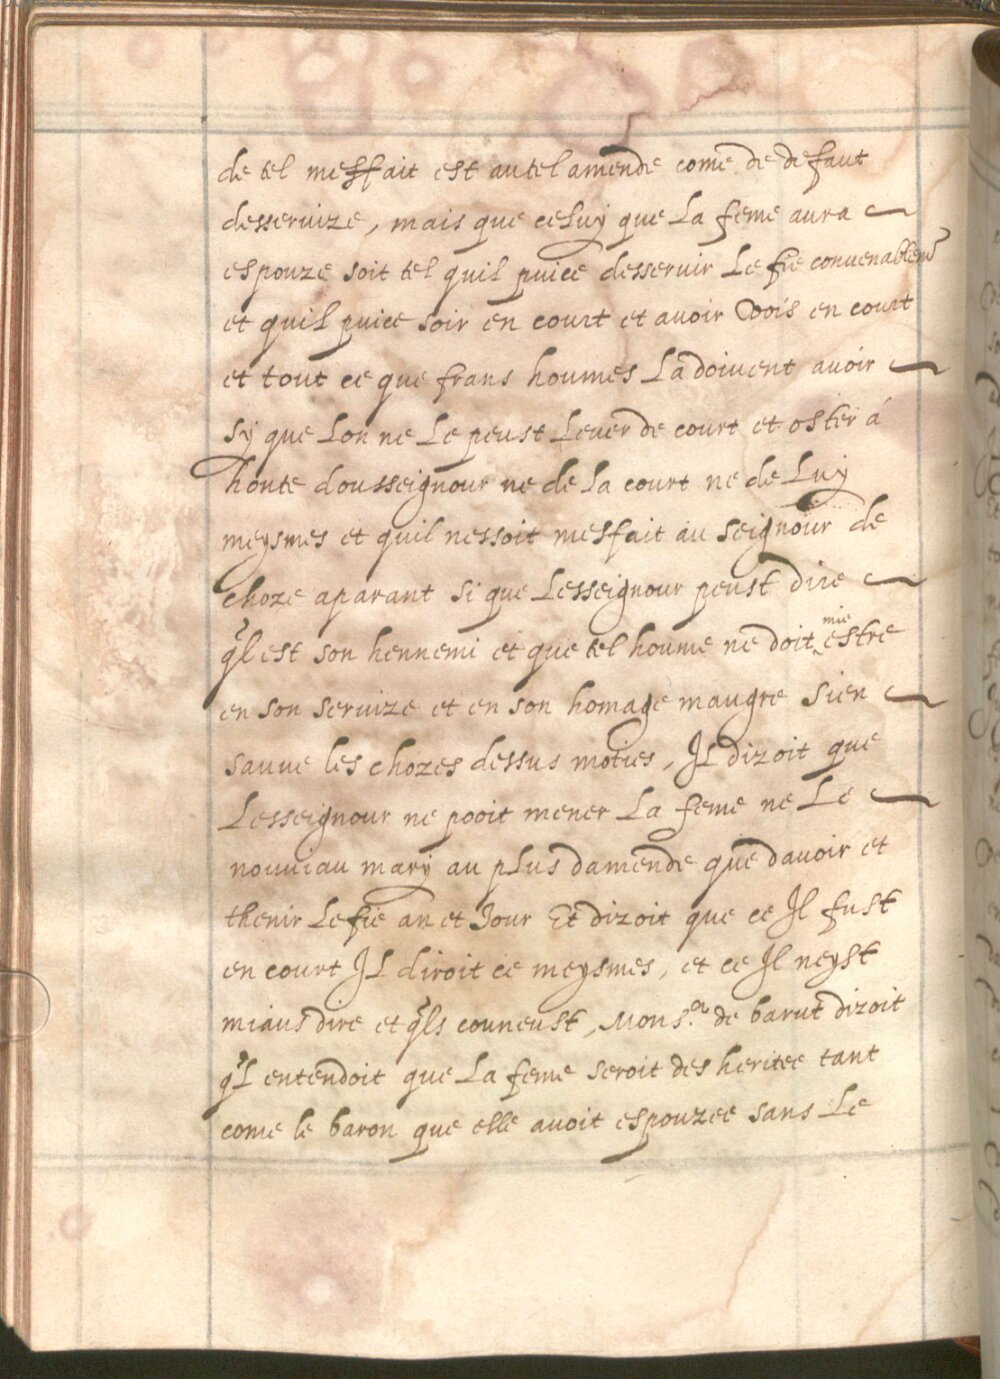 de tel meffait est autel amende come de defaut
desservize, mais que celuy que La feme aura
espouze soit tel quil puice desservir Le fie convenablemt
et quil puice soir en court et avoir Vois en court
et tout ce que frans houmes La doivent avoir
sy que Lon ne Le peust Lever de court et oster á
honte dousseignour ne de La court ne de Luy
meysmes et quil nessoit mesfait au seignour de
choze aparant si que Lesseignour peust dire
ql est son hennemi et que tel houme ne doit mie estre
en son servize et en son homage maugre sien
sauve les chozes dessus moties, Il dizoit que
Lesseignour ne pooit mener La feme ne Le
nouviau mary au plus damende que davoir et
thenir Le fie an et Jour Et dizoit que ce Il fust
en court Il diroit ce meysmes, et ce Il neyst
miaus dire et qls couneust, Mons.or de barut dizoit
ql entendoit que La feme seroit des heritee tant
come le baron que elle avoit espouzee sans Le